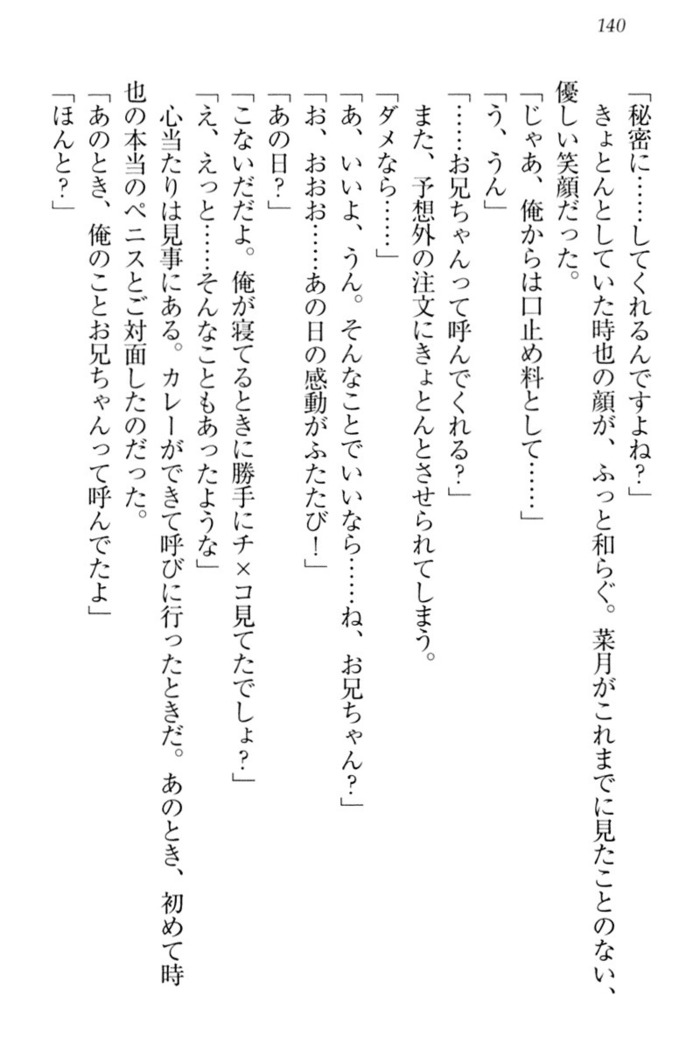 140
「秘密に……してくれるんですよね？」
きょとんとしていた時也の顔が、ふっと和らぐ。菜月がこれまでに見たことのない、
優しい笑顔だった。
「じゃあ、俺からは口止め料として……」
「う、うん」
「……お兄ちゃんって呼んでくれる？」
また、予想外の注文にきょとんとさせられてしまう。
「ダメなら……」
「あ、いいよ、うん。そんなことでいいなら……ね、お兄ちゃん？」
「お、おおお……あの日の感動がふたたび！」
「あの日？」
「こないだだよ。俺が寝てるときに勝手にチ×コ見てたでしょ？」
「え、えっと……そんなこともあったような」
心当たりは見事にある。カレーができて呼びに行ったときだ。あのとき、初めて時
也の本当のペニスとご対面したのだった。
「あのとき、俺のことお兄ちゃんって呼んでたよ」
「ほんと？」